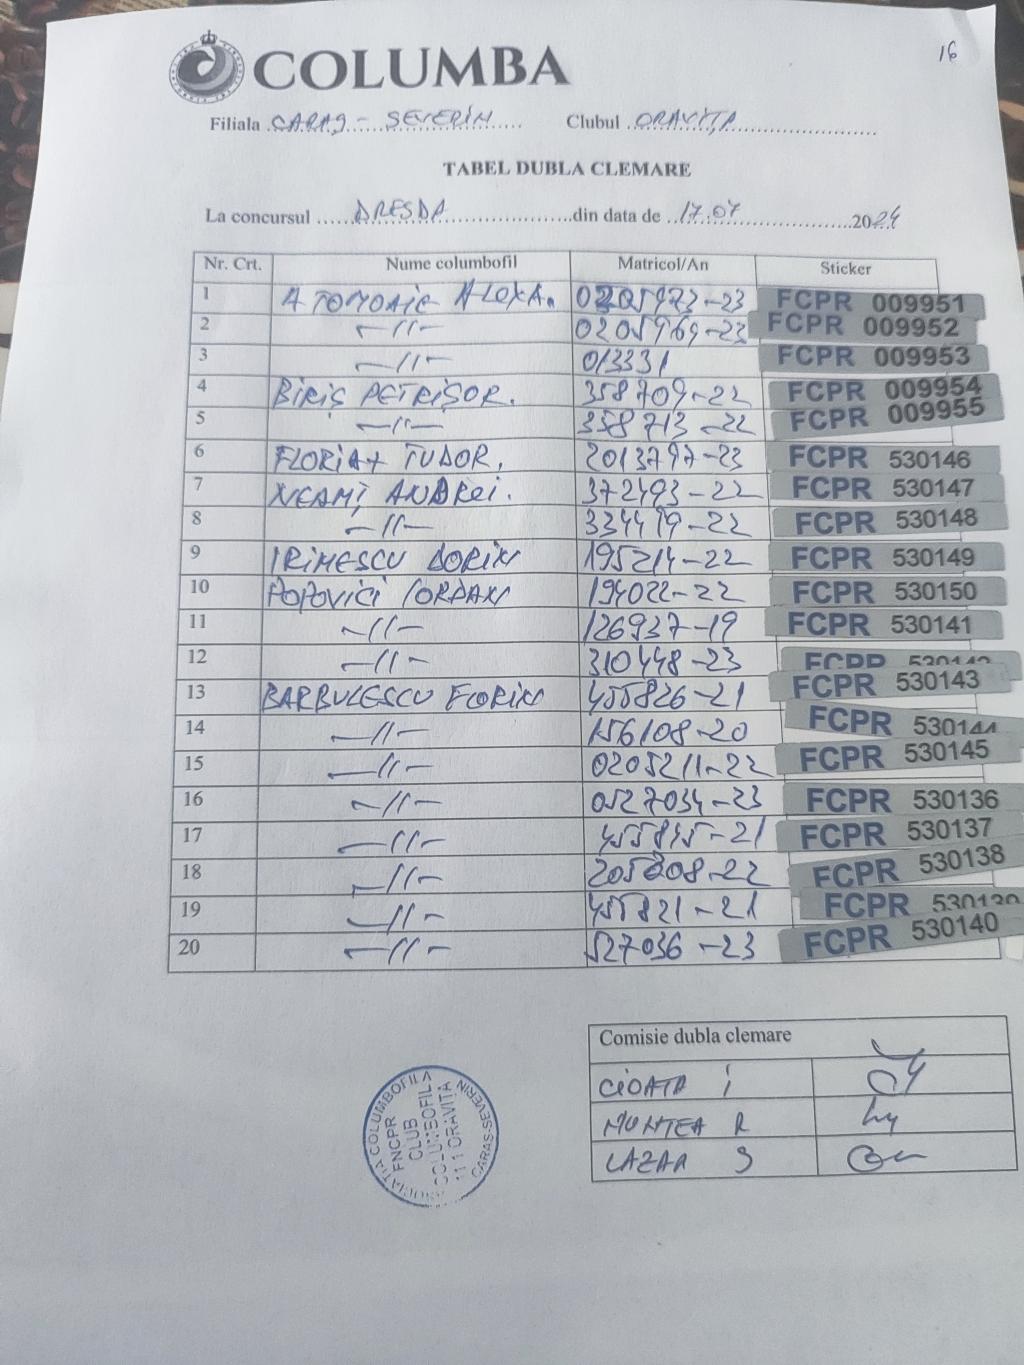 16
COLUMBA
Filiala CARAȘ - SEVERIN Clubul ORAVIȚA
TABEL DUBLA CLEMARE
La concursul DRESDA din data de 17.07 2024
Nr. Crt. Nume columbofil Matricol/An Sticker
1 ATOMOAIE ALEXA. 0205973-23 FCPR 009951
2 -//- 0205969-23 FCPR 009952
3 -//- 013331 FCPR 009953
4 BIRIȘ PETRIȘOR. 358709-22 FCPR 009954
5 -//- 358713-22 FCPR 009955
6 FLORIAN TUDOR, 2013797-23 FCPR 530146
7 NEAMȚ ANDREI. 372493-22 FCPR 530147
8 -//- 334479-22 FCPR 530148
9 IRIMESCU DORIN 195214-22 FCPR 530149
10 POPOVICI IORDAN 194022-22 FCPR 530150
11 -//- 126937-19 FCPR 530141
12 -//- 310448-23 FCPR 530142
13 BARBULESCU FLORIN 455826-21 FCPR 530143
14 -//- 156108-20 FCPR 530144
15 -//- 0205211-22 FCPR 530145
16 -//- 0527034-23 FCPR 530136
17 -//- 455845-21 FCPR 530137
18 -//- 205208-22 FCPR 530138
19 -//- 455821-21 FCPR 530139
20 -//- 527036-23 FCPR 530140
Comisie dubla clemare
CIOATA I
MUNTEA R
LAZAR S
ASOCIATIA COLUMBOFILA
CARAS-SEVERIN
FNCPR
CLUB
COLUMBOFIL
111 ORAVIȚA